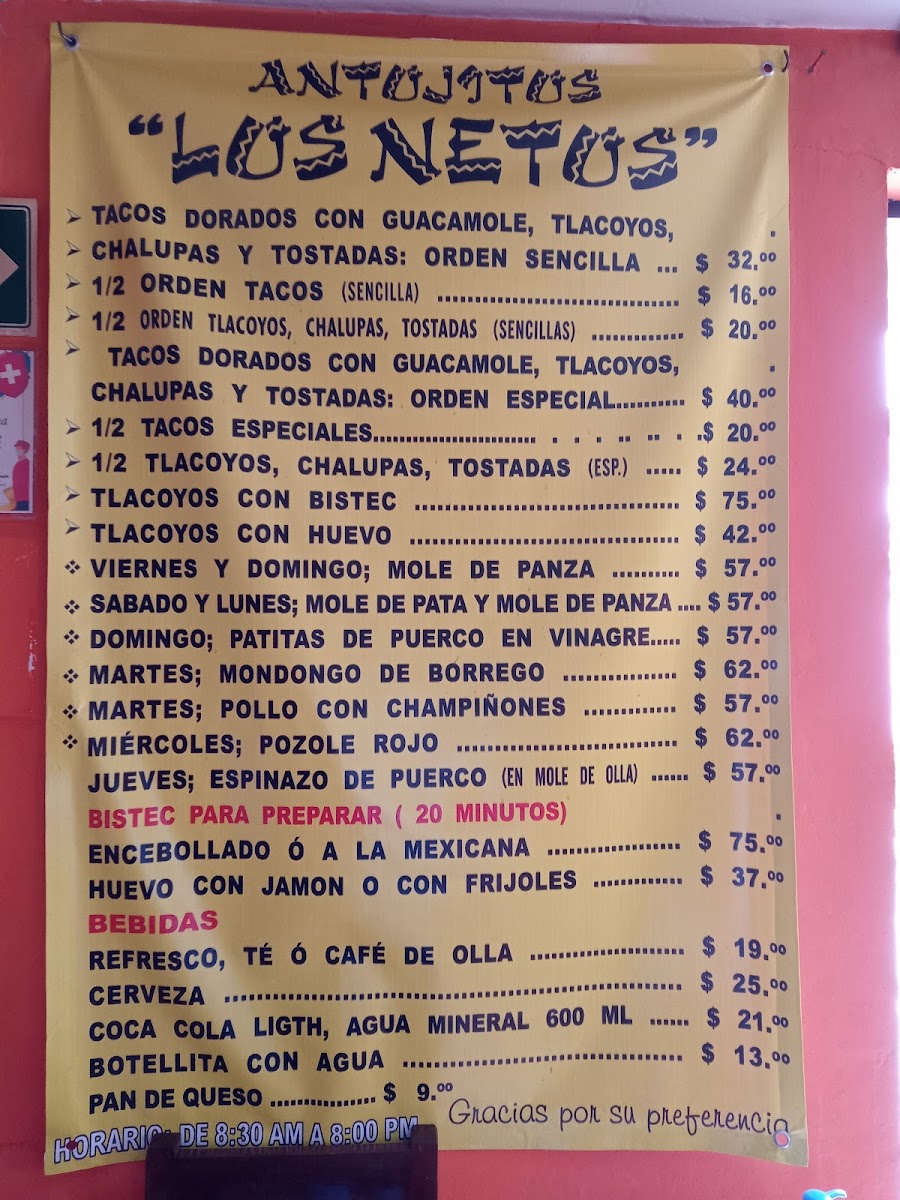 ANTOJITOS
"LOS NETOS"
➢ TACOS DORADOS CON GUACAMOLE, TLACOYOS, .
➢ CHALUPAS Y TOSTADAS: ORDEN SENCILLA ... $ 32.⁰⁰
➢ 1/2 ORDEN TACOS (SENCILLA) ................................ $ 16.⁰⁰
➢ 1/2 ORDEN TLACOYOS, CHALUPAS, TOSTADAS (SENCILLAS) ............. $ 20.⁰⁰
➢ TACOS DORADOS CON GUACAMOLE, TLACOYOS, .
CHALUPAS Y TOSTADAS: ORDEN ESPECIAL.......... $ 40.⁰⁰
➢ 1/2 TACOS ESPECIALES......................... . . . .. .. . .$ 20.⁰⁰
➢ 1/2 TLACOYOS, CHALUPAS, TOSTADAS (ESP.) ..... $ 24.⁰⁰
➢ TLACOYOS CON BISTEC ................................... $ 75.⁰⁰
➢ TLACOYOS CON HUEVO ................................... $ 42.⁰⁰
❖ VIERNES Y DOMINGO; MOLE DE PANZA .......... $ 57.⁰⁰
❖ SABADO Y LUNES; MOLE DE PATA Y MOLE DE PANZA .... $ 57.⁰⁰
❖ DOMINGO; PATITAS DE PUERCO EN VINAGRE..... $ 57.⁰⁰
❖ MARTES; MONDONGO DE BORREGO ............... $ 62.⁰⁰
❖ MARTES; POLLO CON CHAMPIÑONES ............. $ 57.⁰⁰
❖ MIÉRCOLES; POZOLE ROJO ............................. $ 62.⁰⁰
JUEVES; ESPINAZO DE PUERCO (EN MOLE DE OLLA) ...... $ 57.⁰⁰
BISTEC PARA PREPARAR ( 20 MINUTOS) .
ENCEBOLLADO Ó A LA MEXICANA .................. $ 75.⁰⁰
HUEVO CON JAMON O CON FRIJOLES ............ $ 37.⁰⁰
BEBIDAS
REFRESCO, TÉ Ó CAFÉ DE OLLA .................... $ 19.⁰⁰
CERVEZA ............................................................ $ 25.⁰⁰
COCA COLA LIGTH, AGUA MINERAL 600 ML ...... $ 21.⁰⁰
BOTELLITA CON AGUA ..................................... $ 13.⁰⁰
PAN DE QUESO ............... $ 9.⁰⁰
Gracias por su preferencia
HORARIO: DE 8:30 AM A 8:00 PM